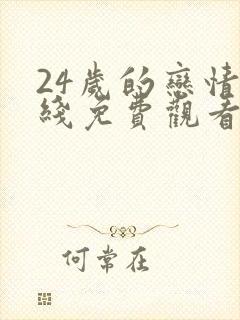 24歲的戀情
綫免費觀看
何常在